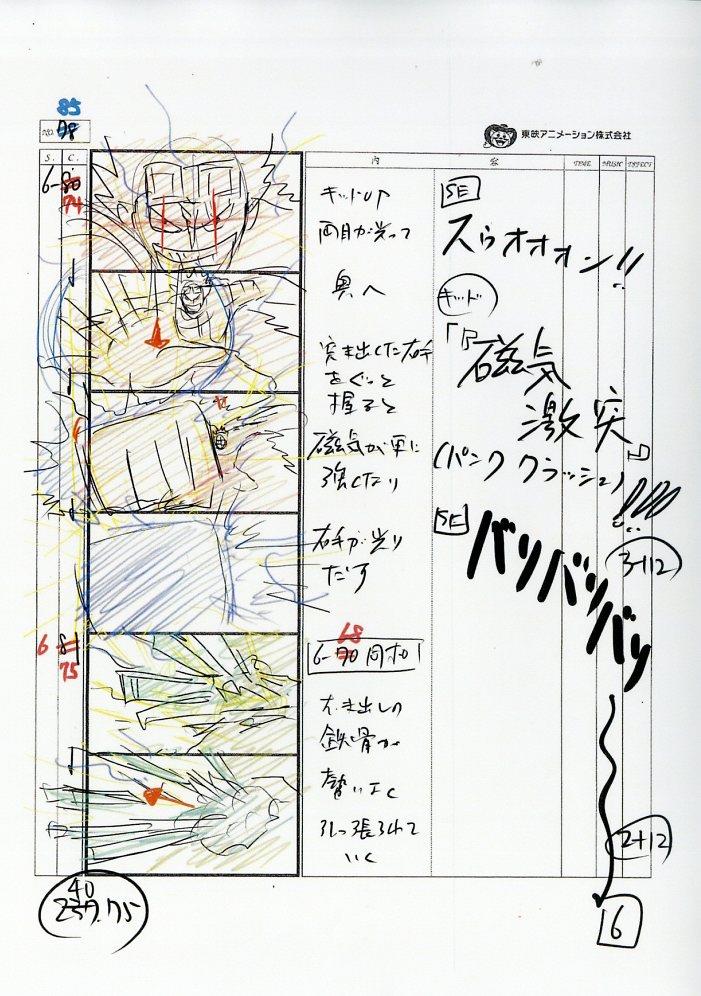 85
NO. 78
東映アニメーション株式会社
S. C. 内 容 TIME MUSIC EFFECT
6-80
74
キッドUP
両目が光って
SE
スゥオオオン!!
奥へ
キッド
突き出した右手
をぐっと
握ると
「『磁気
激突』
(パンククラッシュ)
磁気が更に
強くなり
SE
バリバリバリ
3+12
右手が光り
だす
6-81
75
68
6-70 同ポ
むき出しの
鉄骨が
勢いよく
引っ張られて
いく
2+12
40
237.75
6